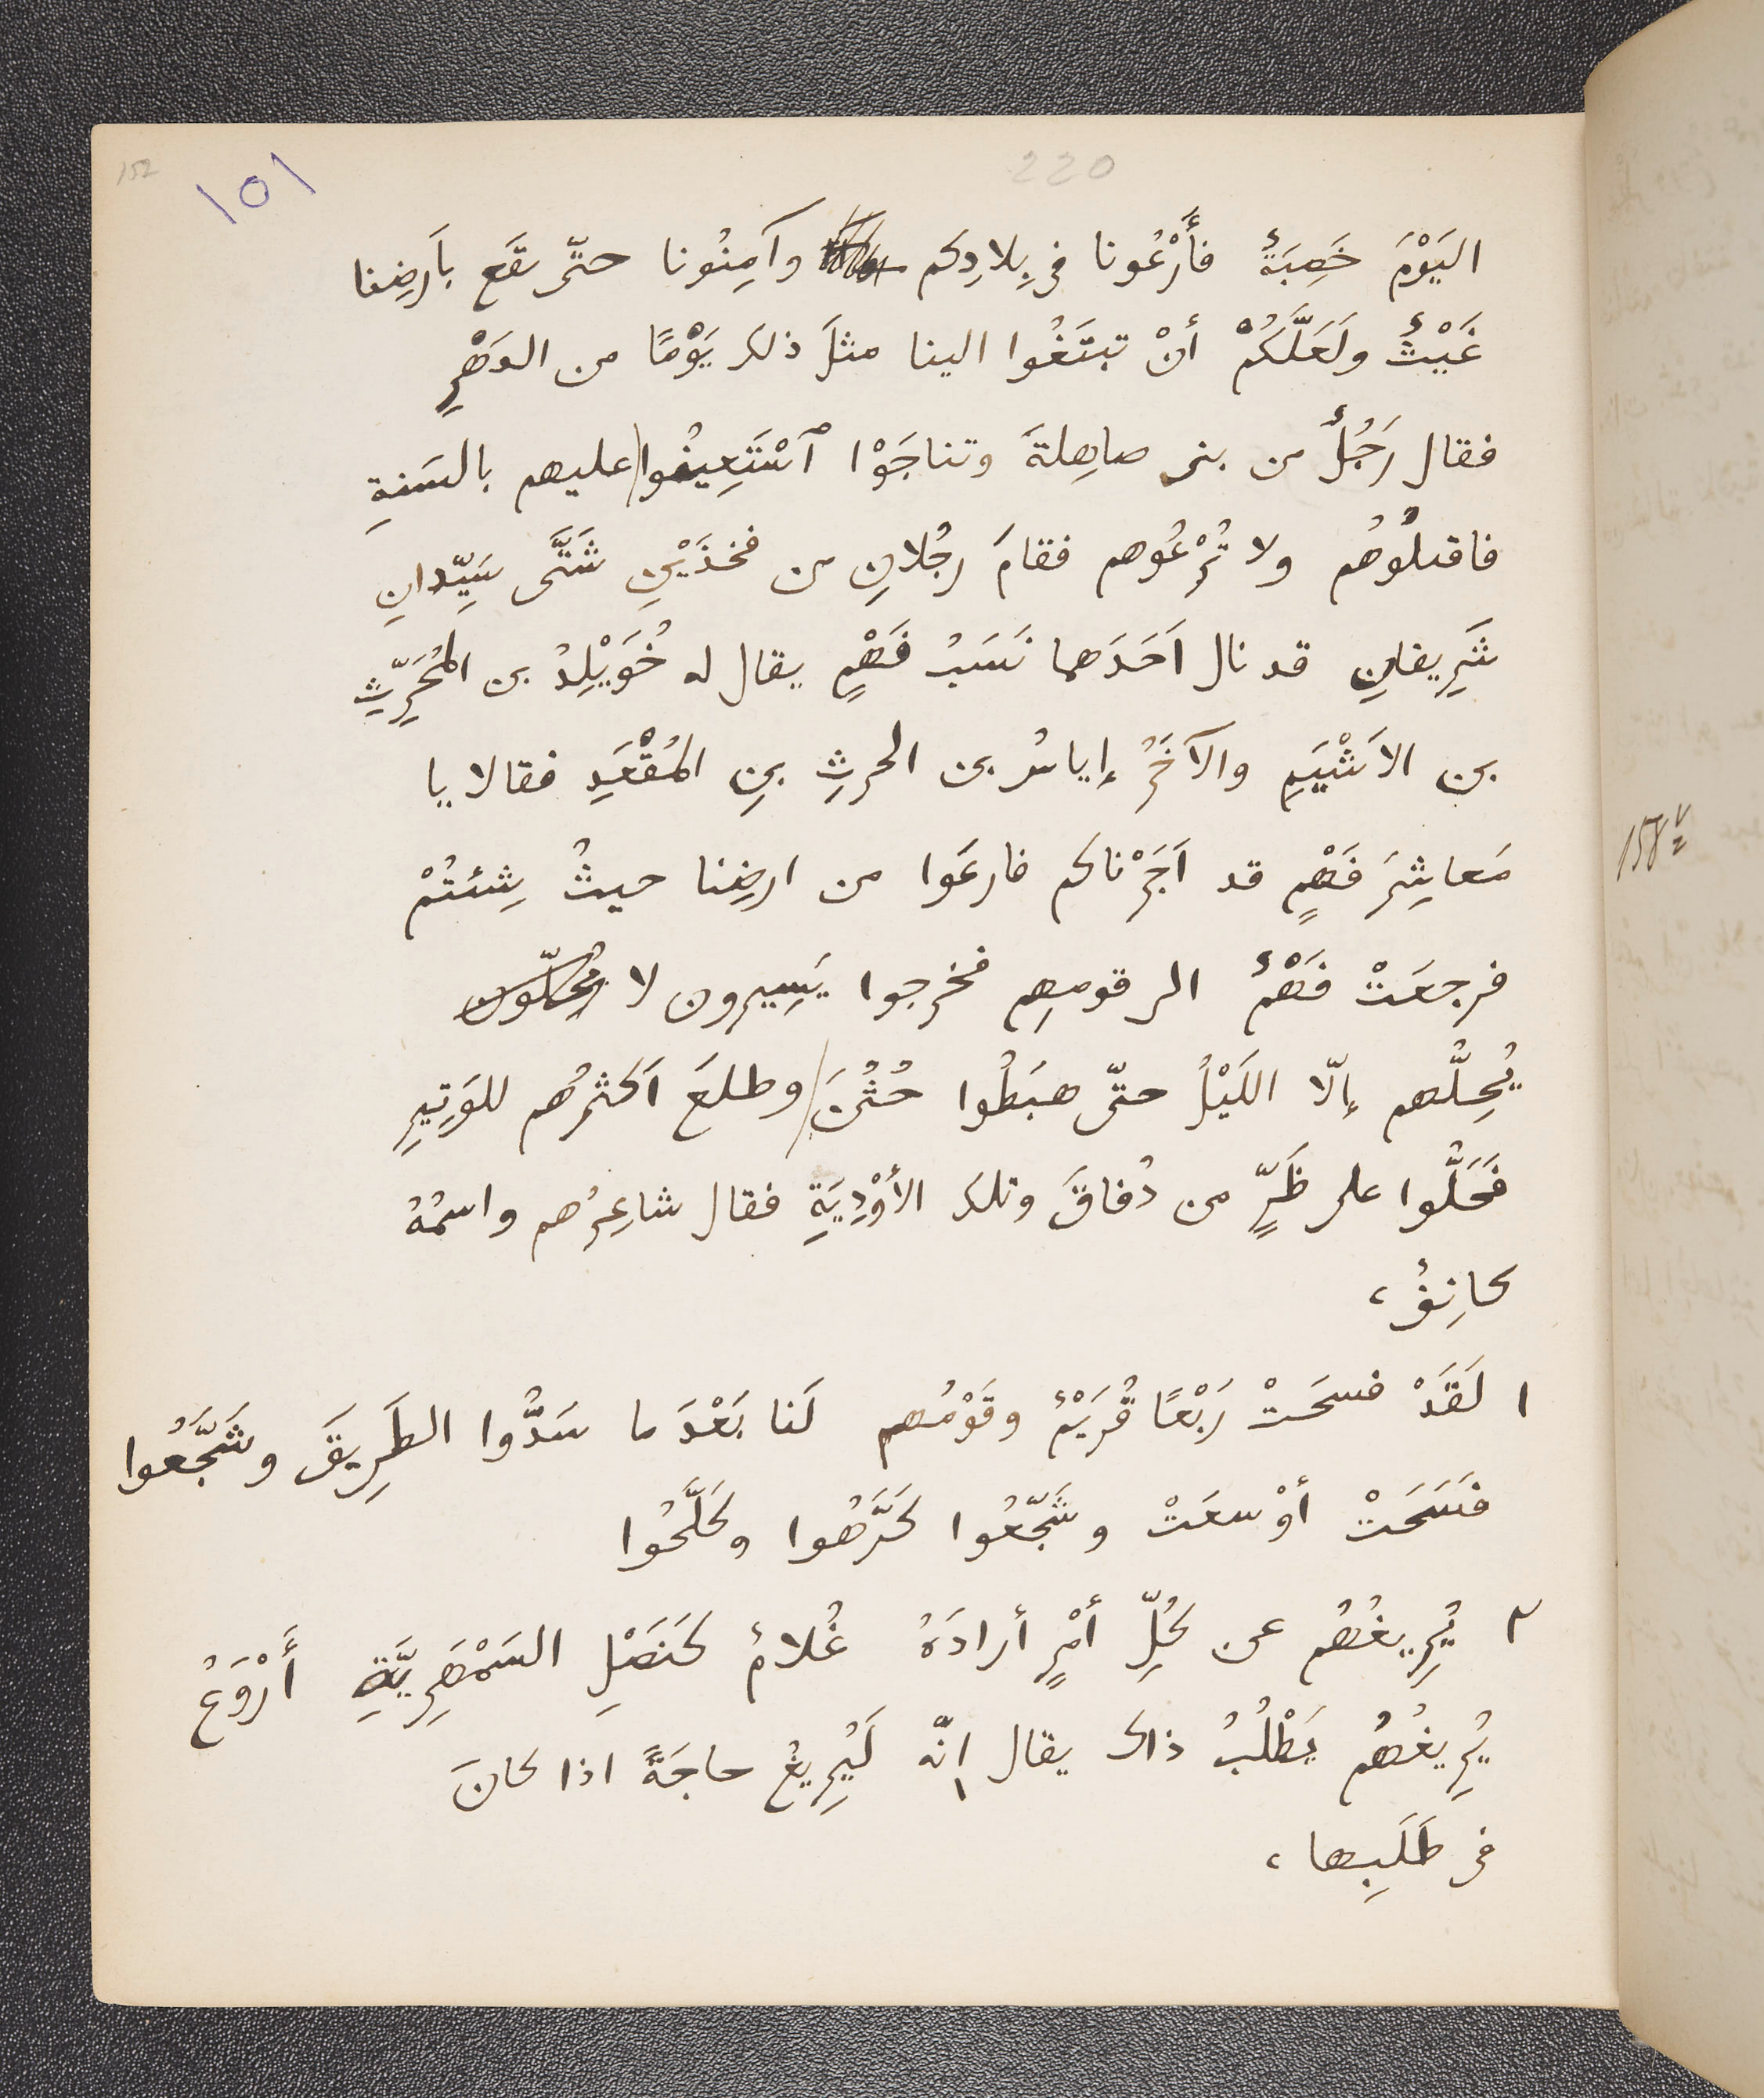 152
١٥١
220
اليَوْمَ خَصِبَةٌ فأَرْعُونا فى بِلادِكم وآمِنُونا حتّى يقَع بأَرضِنا
غَيْثٌ ولَعَلَّكُمْ أنْ تبتَغُوا الينا مثلَ ذلك يَوْمًا من الدَهْرِ
فقال رَجُلٌ من بنى صاهِلةَ وتناجَوْا ٱسْتَعِينُوا عليهم بالسَنةِ
فاقتلُوهُم ولا تُرْعُوهم فقامَ رجُلانِ من فخذَيْنِ شَتَّى سَيِّدانِ
شَرِيفانِ قد نال اَحَدَهما نَسَبُ فَهْمٍ يقال له خُوَيْلِدُ بن المُحَرِّثِ
بن الاَشْيَمِ والآخَرُ إياسُ بن الحرثِ بنِ المُقْعَدِ فقالا يا
مَعاشِرَ فَهْمٍ قد اَجَرْناكم فارعَوا من ارضِنا حيثُ شِئتُمْ
158v
فرجعَتْ فَهْمٌ الى قومِهِم فخرجوا يَسِيرون لا
يُحِلُّهم إلّا اللَيْلُ حتّى هبَطُوا حُثُنَ وطلعَ اَكثرُهم للوَتِيرِ
فَحَلُّوا على ظَرٍّ من دُفاقَ وتلك الأوْدِيَةِ فقال شاعِرُهم واسمُهُ
كانِفٌ،
١ لَقَدْ فسحَتْ رَبْعًا قُرَيْمٌ وقَوْمُهم لَنا بَعْدَ ما سَدُّوا الطَرِيقَ وشَجَّعُوا
فسَحَتْ أوْسعَتْ وشَجّعُوا كَرَّهُوا وكَلَّحُوا
٢ يُرِيغُهُم عن كُلِّ أمْرٍ أرادَهُ غُلامٌ كَنَصْلِ السَمْهَرِيَّةِ أَرْوَعُ
يُرِيغُهُم يَطْلُبُ ذاك يقال إنّه لَيُرِيغُ حاجَةً اذا كانَ
فى طَلَبِها،